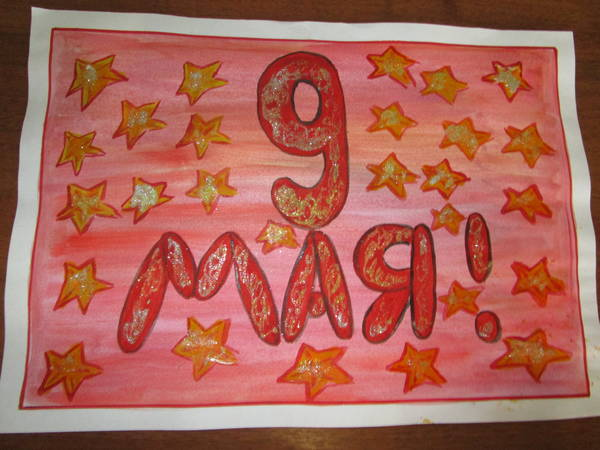 9
МАЯ!